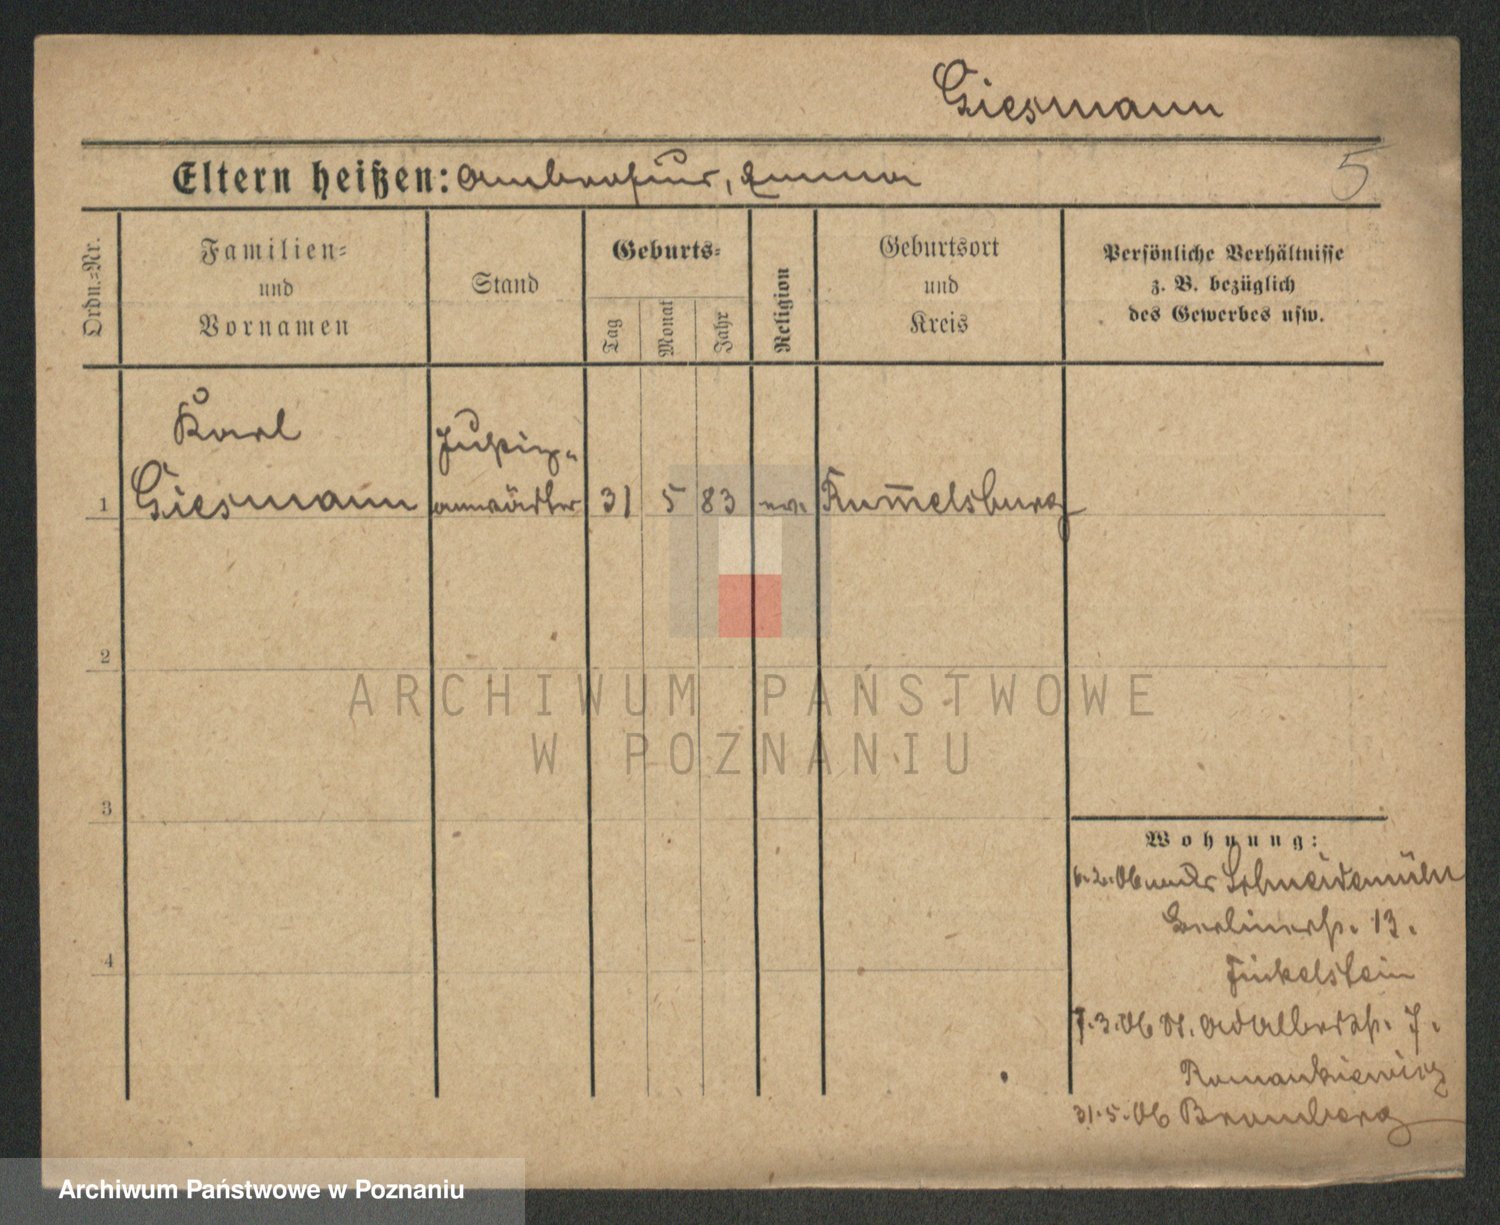 Giesmann
Eltern heißen: Ambrosius, Emma
5
Ordn.-Nr.
Familien-
und
Vornamen
Stand
Geburts-
Tag
Monat
Jahr
Religion
Geburtsort
und
Kreis
Persönliche Verhältnisse
z. B. bezüglich
des Gewerbes usw.
Karl
Justiz-
1 Giesmann anwärter 31 5 83 ev. Rummelsburg
2
3
4
Wohnung:
6.2.06 Schneidemühl
Berlinerstr. 13.
Finkelstein
7.3.06 St. Adalbertstr. 7.
Romankiewicz
31.5.06 Bromberg
ARCHIWUM PAŃSTWOWE
W POZNANIU
Archiwum Państwowe w Poznaniu